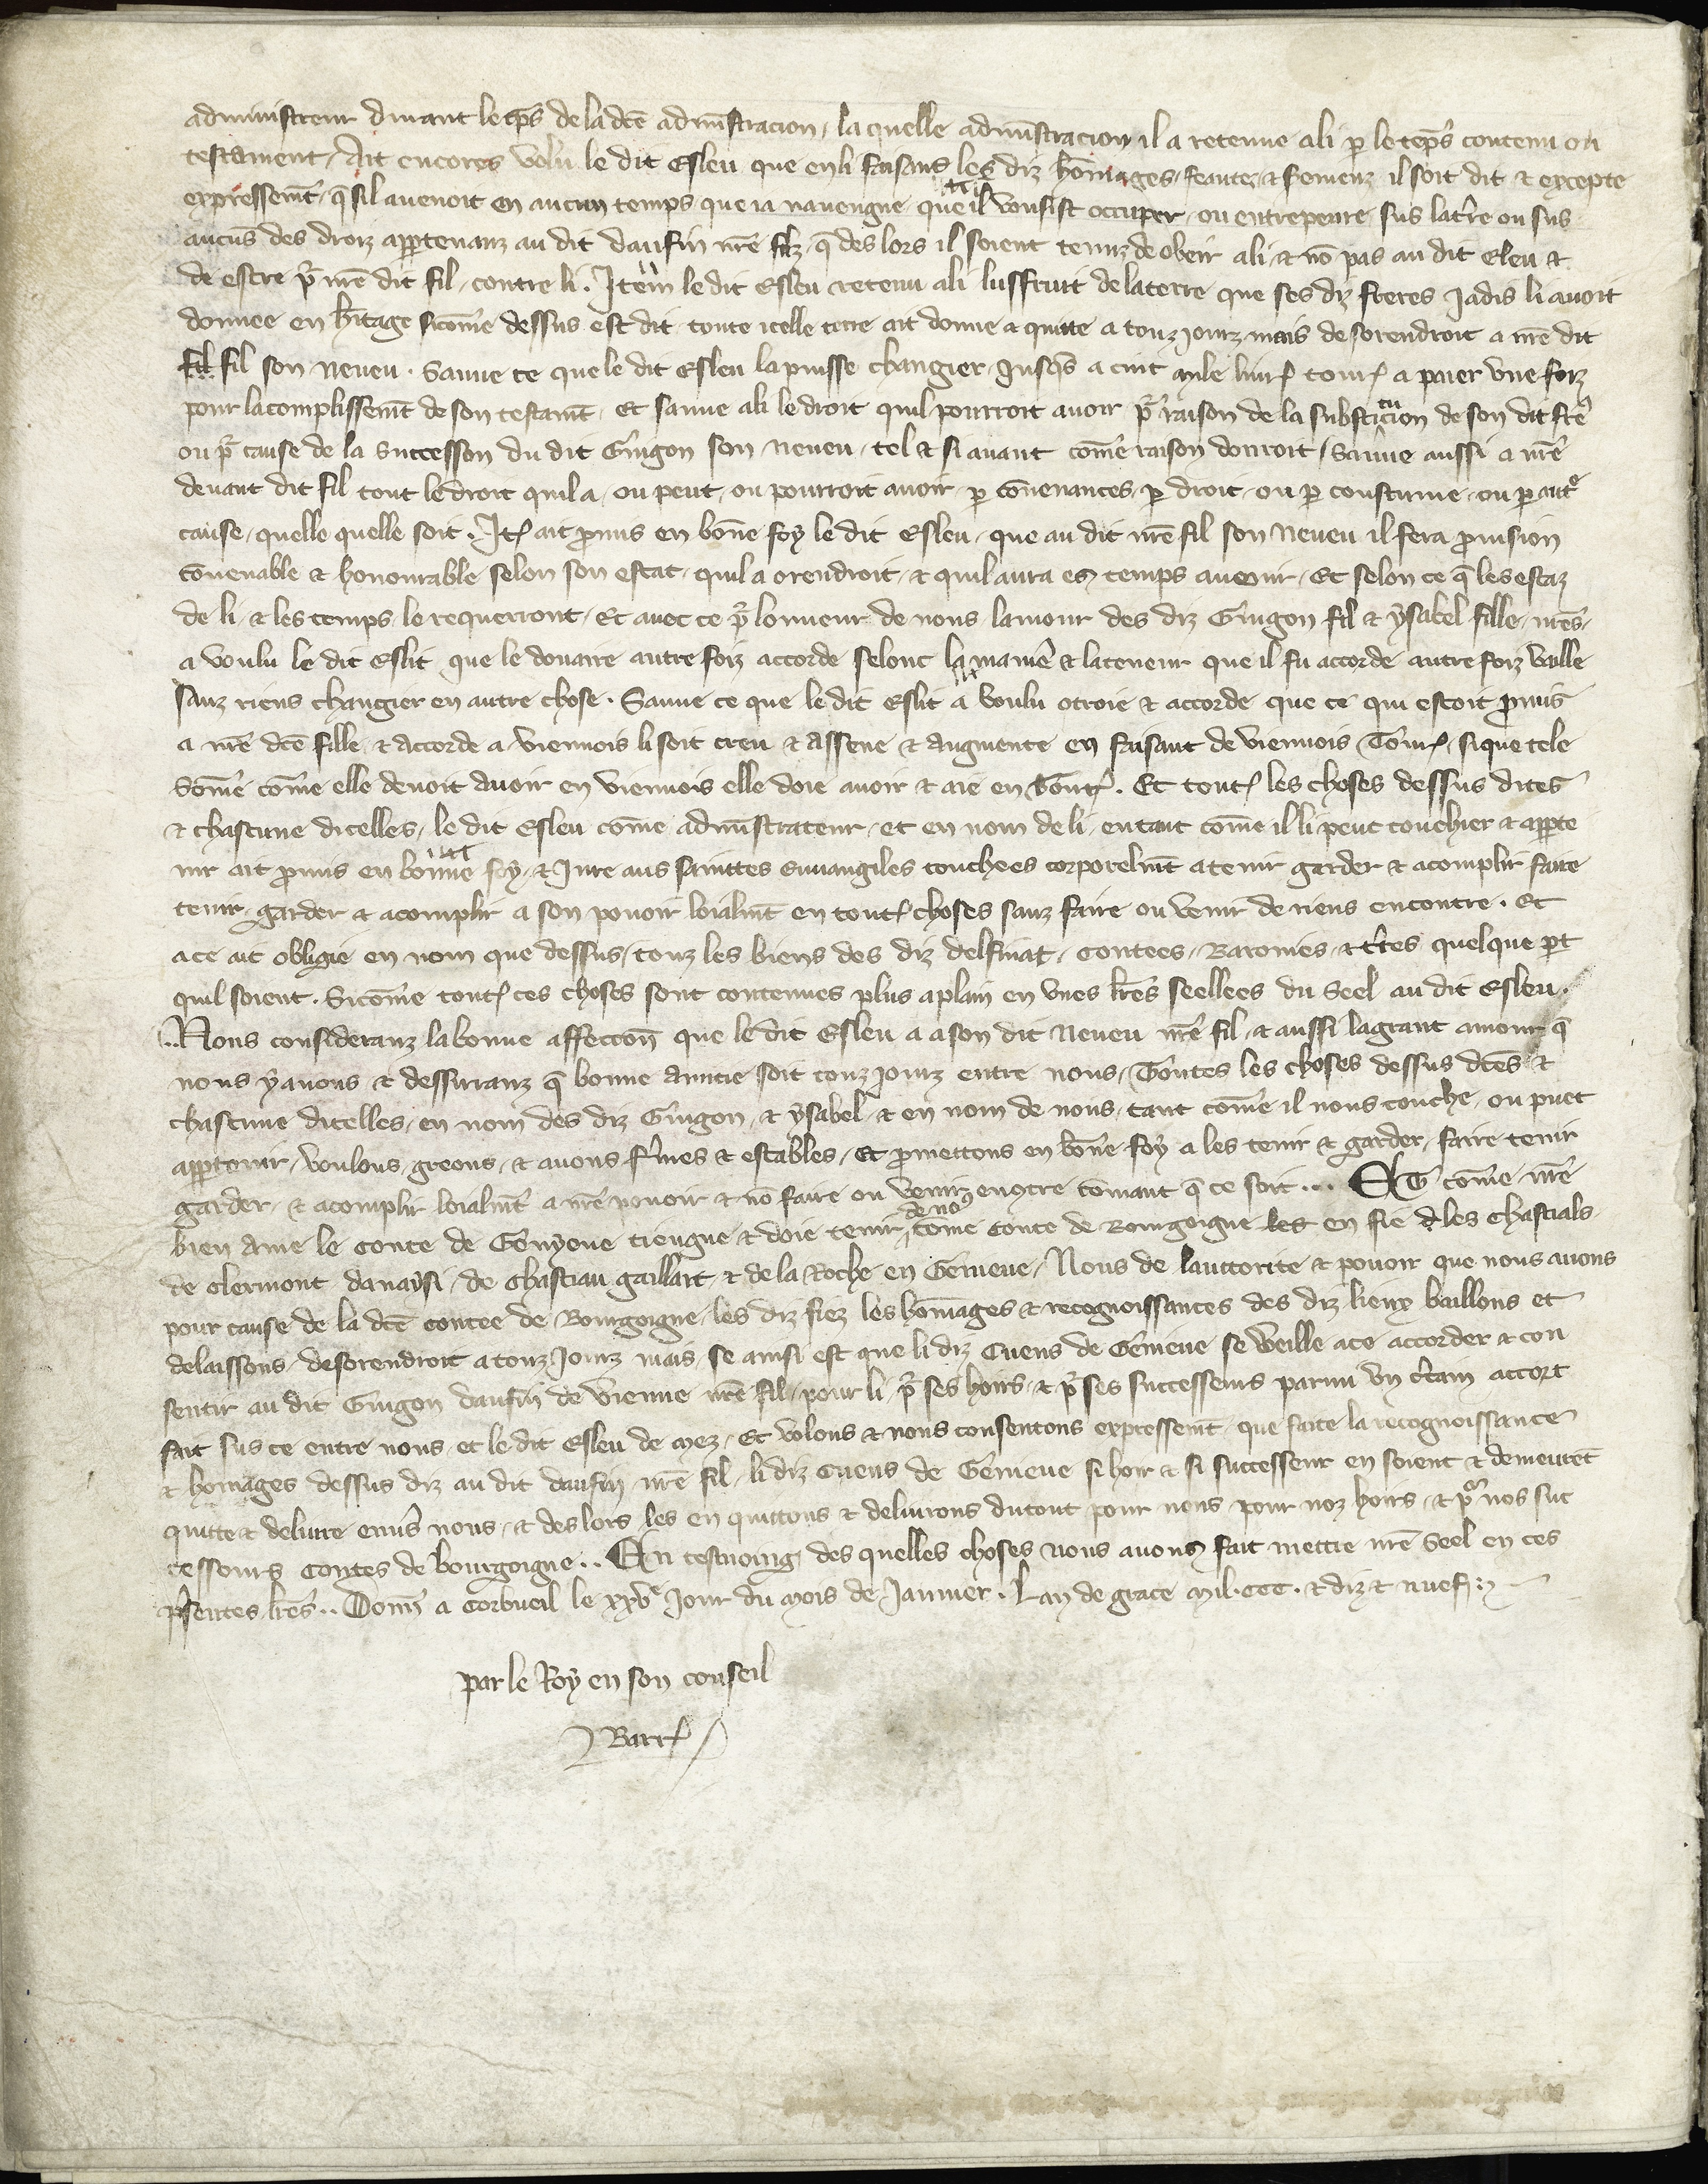 administreur durant le tēps de la dc̄e admīstracion, la quelle admīstracion il a retenue a li ꝑ le tēps contenu ou
testament. Ait encores volu le dit Esleu que en li faisant les diz hōmages, feautez, & seremenz il soit dit & excepte
expressemt̄ q̄ sil auenoit en aucun temps que ia nauengne que il vousist occuper ou entrepenre sus la t̄re ou sus
aucūs des droiz ap̲ptenanz au dit daufin nr̄e filz, q̄ des lors il soient tenuz de obeir a li & nō pas au dit Eleu &
de estre pr̄ nr̄e dit fil, contre li. Item le dit Esleu retenu a li lusffruit de la terre que ses diz freres Jadis li auoit
donnee en h̄itage sicōme dessus est dit toute icelle terre ait donne & quitte a touz jourz mais desorendroit a nr̄e dit
fil fil son Neueu. Sauue ce que le dit Esleu la puisse changier Jusq̄s a cint mile liur̄ tour̄ a paier vne foiz
pour lacomplissemt̄ de son testamt̄. Et sauue a li le droit quil pourroit auoir pr̄ raison de la substitucion de son dit fr̄e
ou pr̄ cause de la succession du dit Guigon son Neueu, tel & si auant cōme raison donroit, Sauue aussi a nr̄e
deuant dit fil tout le droit quil a, ou peut, ou pourroit auoir ꝑ cōuenances, ꝑ droit, ou ꝑ coustume, ou ꝑ autͤ
cause, quelle quelle soit. Itꝭ ait ꝓmis en bōne foy le dit Esleu, que au dit nr̄e fil son Neueu il fera ꝓuision
cōuenable & honourable selon son estat, quil a orendroit, & quil aura es temps auenir, Et selon ce q̄ les estaz
de li, & les temps le requerront, Et auec ce pr̄ lonneur de nous lamour des diz Guigon fil & ysabel fille nr̄es,
a voulu le dit Eslit que le douaire autre foiz accorde selonc la maniē & la teneur que il fu accorde autre foiz vaille
sanz riens changier en autre chose. Sauue ce que le dit Eslit a voulu otroie & accorde que ce qui estoit ꝓmis
a nr̄e dc̄e fille & accorde a viennois li soit creu & assene & augmente en faisant de viennois Tour̄, si que tele
Sōme cōme elle deuoit auoir en viennois elle doie auoir & aie en Tour̄. Et toutꝭ les choses dessus dites
& chascune dicelles, le dit Esleu cōme admīstrateur, et en nom de li, en tant cōme il li peut touchier & ap̲pte
nir ait ꝓmis en bonne foy, & Jure aus saintes Euuangiles touchees corporelmt̄ a tenir garder & acomplir faire
tenir, garder & acomplir a son pouoir loialmt̄ en toutꝭ choses sanz faire ou venir de riens encontre. Et
a ce ait obligie en nom que dessus, touz les biens des diz delfinat, Contees, Baronies, & t̄res quelque ꝑt
quil soient. Sicōme toutꝭ ces choses sont contenues plus a plain en vnes lr̄es seellees du Seel au dit Esleu.
..Nous consideranz la bonne affeccion que le dit Esleu a a son dit Neueu nr̄e fil & aussi la grant amour q̄
nous y auons & dessirranz q̄ bonne amitie soit touz jourz entre nous, Toutes les choses dessus dc̄es &
chascune dicelles, en nom des diz Guigon, & ysabel & en nom de nous, tant cōme il nous touche, ou puet
ap̲ptenir, voulons, greons, & auons f̄mes & estables, Et ꝓmettons en bōne foy a les tenir & garder, faire tenir
garder & acomplir loialmt̄ a nr̄e pouoir & nō faire ou venir encontre cōmant q̄ ce soit... Et cōme nr̄e
bien ame le conte de Geneue tiengne & doie tenir de nous cōme conte de Bourgoigne les en fie & les chastials
de clermont danaysi, de chastiau gaillart & de la Roche en Geneue, Nous de lauttorite & pouoir que nous auons
pour cause de la dc̄e contee de Bourgoigne, les diz fiez les hōmages & recognoissances des diz lieux baillons et
delaissons desorendroit a touz jourz mais, se ainsi est que li diz Cuens de Geneue se veille a ce accorder & con
sentir au dit Guigon daufin de vienne nr̄e fil, pour li pr̄ ses hoirs, & pr̄ ses successeurs parmi vn c̄tain accort
fait sus ce entre nous et le dit Esleu de Mez, Et volons & nous consentons expressemt̄ que faite la recognoissance
& homages dessus diz au dit daufin nr̄e fil, li diz Cuens de Geneue si hoir & si successeur en soient & demeurēt
quitte & deliure enuers nous, & des lors les en quittons & deliurons du tout pour nous, pour noz hoirs, & pr̄ nos suc
cesseurs Contes de bourgoigne.. En tesmoing des quelles choses nous auons fait mettre nr̄e Seel en ces
p̄sentes lr̄es.. Donn̄ a Corbueil le xxvͤ Jour du Mois de Januier. Lan de grace Mil.CCC. & diz & nuef.
par le Roy en son conseil
Barr̄